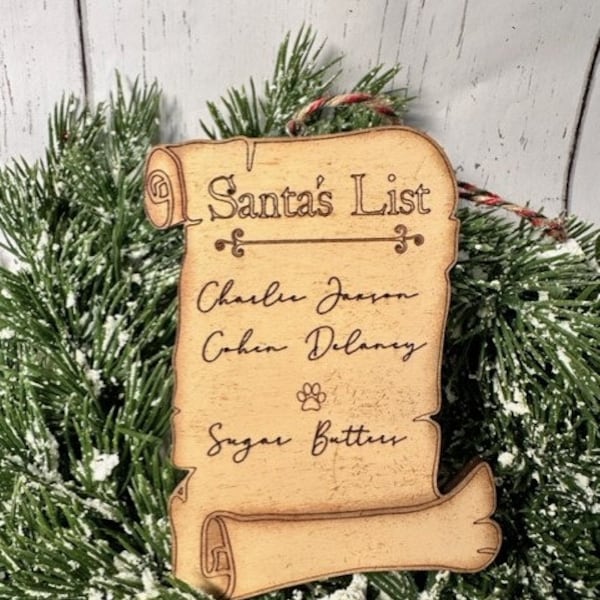 Santa's List
Charlie Jaxson
Cohen Delaney
Sugar Butters